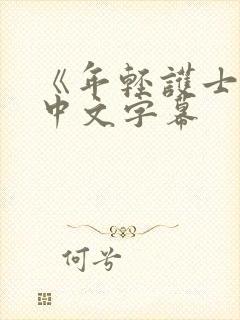 《年轻護士
中文字幕
何兮